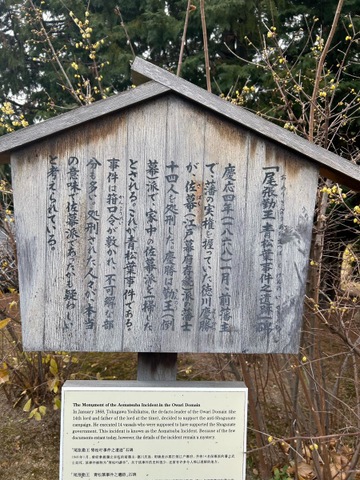 「尾張勤王 青松葉事件之遺跡」碑
慶応四年(一八六八)一月、前藩主
で、藩の実権を握っていた徳川慶勝
が、佐幕(江戸幕府存続)派の藩士
十四人を処刑した。慶勝は勤王(倒
幕)派で、家中の佐幕派を一掃した
とされる。これが青松葉事件である。
事件は箝口令が敷かれ、不可解な部
分も多い。処刑された人々が、本当
の意味で佐幕派であったかも疑わしい
と考えられている。
The Monument of the Aomatsuba Incident in the Owari Domain
In January 1868, Tokugawa Yoshikatsu, the de-facto leader of the Owari Domain (the
14th lord and father of the lord at the time), decided to support the anti-Shogunate
campaign. He executed 14 vassals who were supposed to have supported the Shogunate
government. This incident is known as the Aomatsuba Incident. Because of the few
documents extant today, however, the details of the incident remain a mystery.